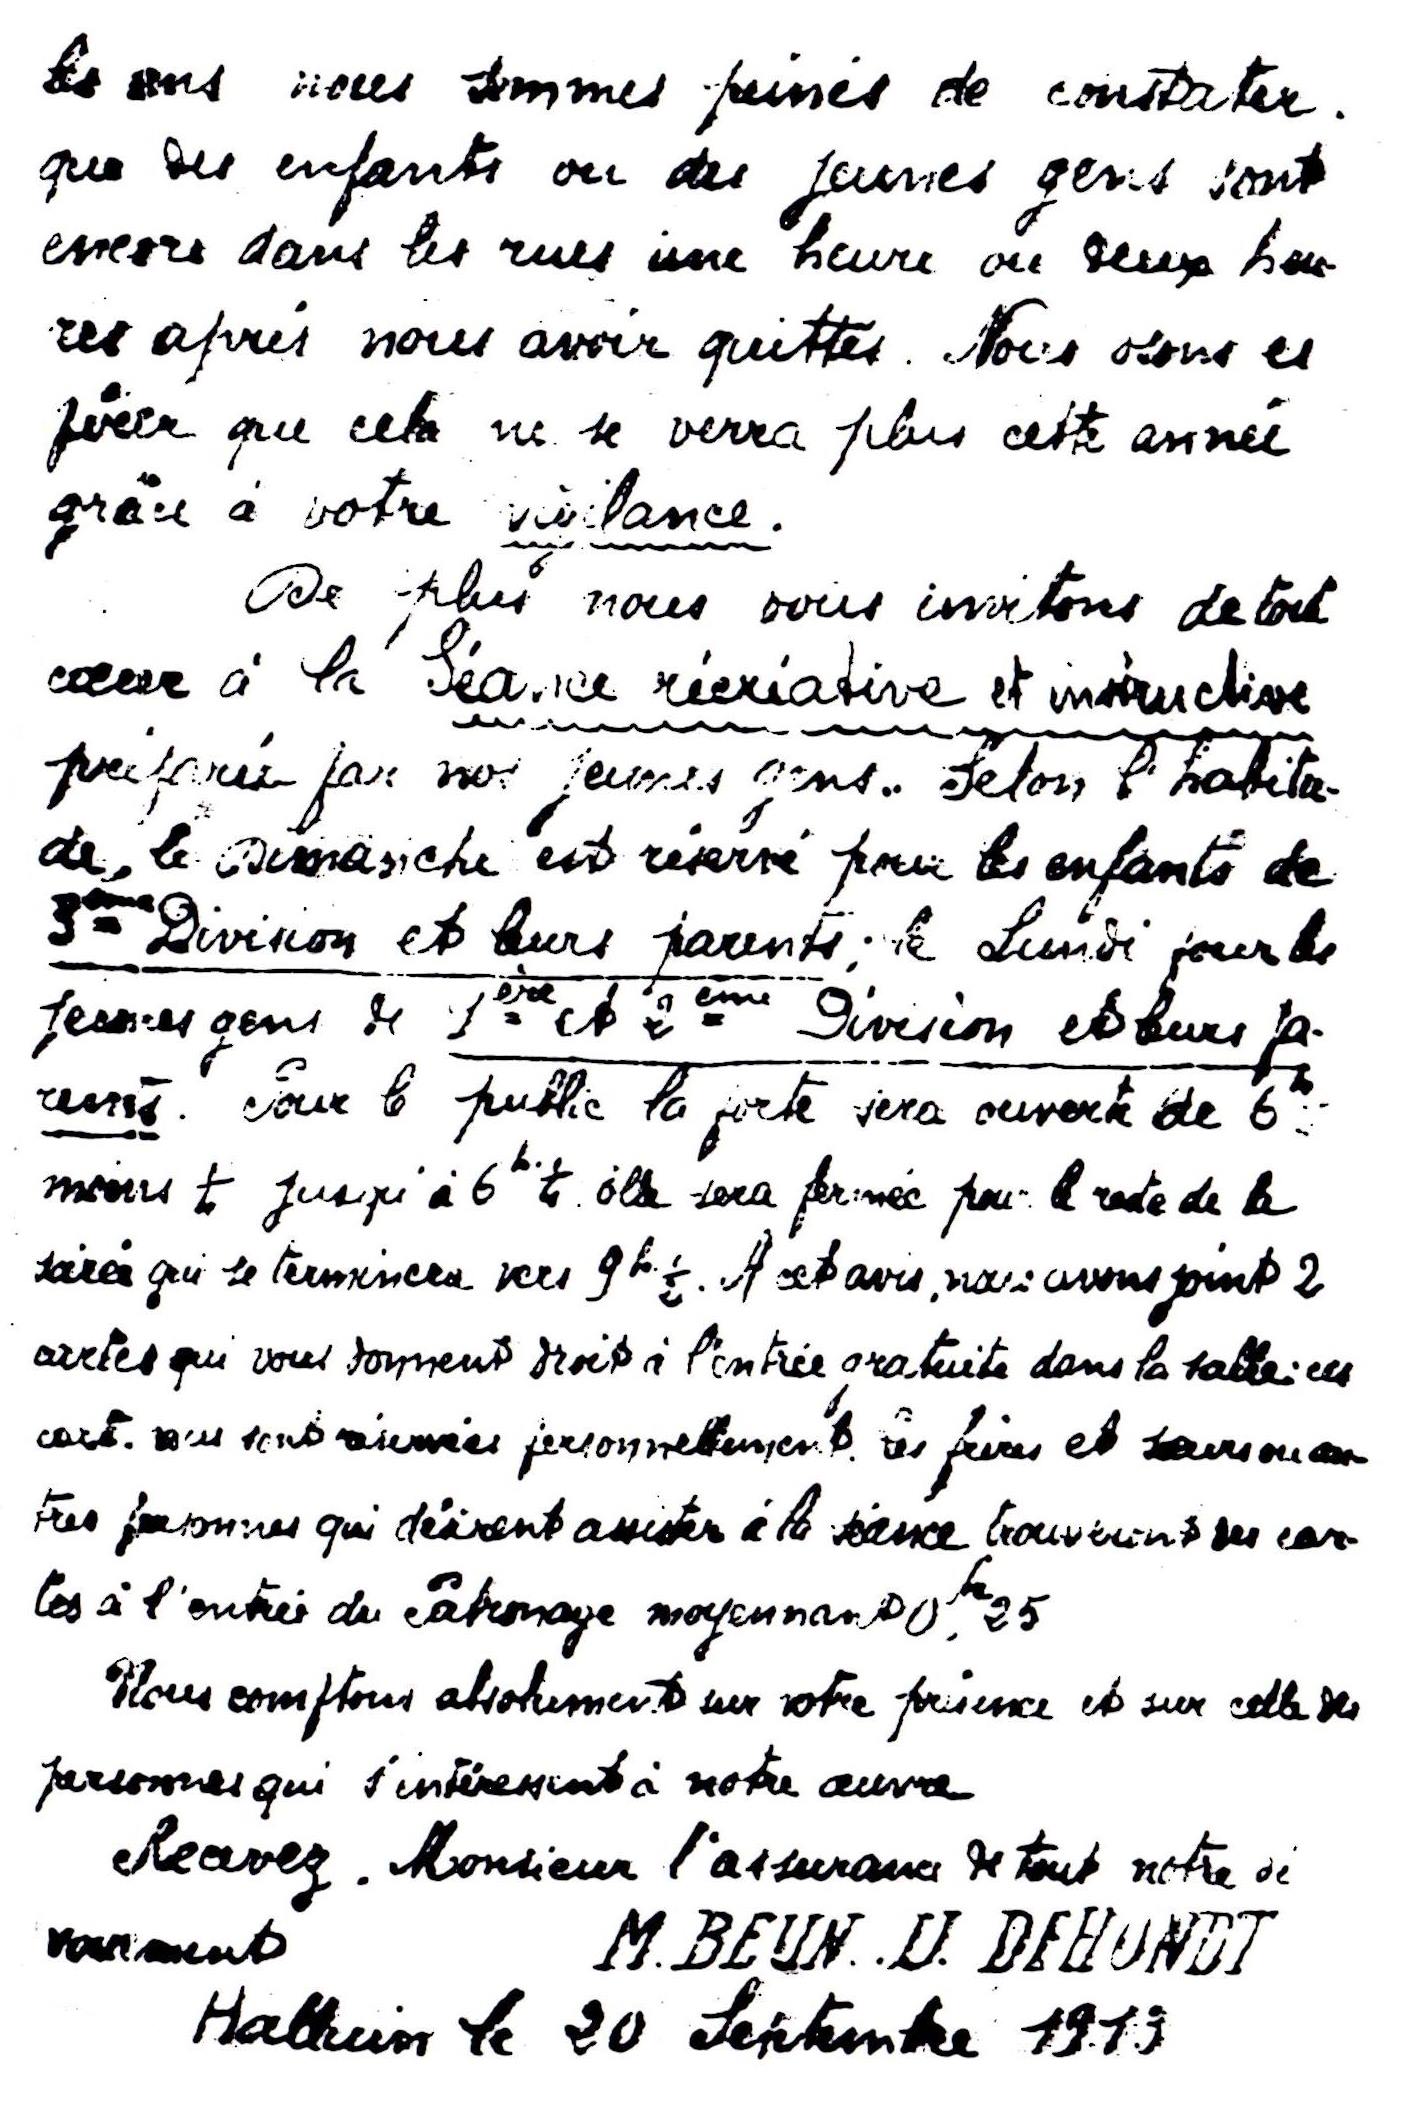 les ans nous sommes peinés de constater.
que des enfants ou des jeunes gens sont
encore dans les rues une heure ou deux heu-
res après nous avoir quittés. Nous osons es
pérer que cela ne se verra plus cette année
grâce à votre vigilance.
De plus nous vous invitons de tout
cœur à la Séance récréative et instructive
préparée par nos jeunes gens.. Selon l'habitu-
de, le Dimanche est réservé pour les enfants de
3ème Division et leurs parents; le Lundi pour les
jeunes gens de 1ère et 2ème Division et leurs pa-
rents. Pour le public la porte sera ouverte de 6h
moins ¼ jusqu'à 6h.¼ elle sera fermée pour le reste de la
soirée qui se terminera vers 9h.½. A cet avis, nous avons joint 2
cartes qui vous donnent droit à l'entrée gratuite dans la salle: ces
cart. vous sont réservées personnellement. Les frères et sœurs ou au-
tres personnes qui désirent assister à la séance trouveront des car-
tes à l'entrée du Patronage moyennant 0fr,25
Nous comptons absolument sur votre présence et sur celle des
personnes qui s'intéressent à notre œuvre
Recevez. Monsieur l'assurance de tout notre dé
vouement M. BEUN.. U. DEHONDT
Halluin le 20 Septembre 1913